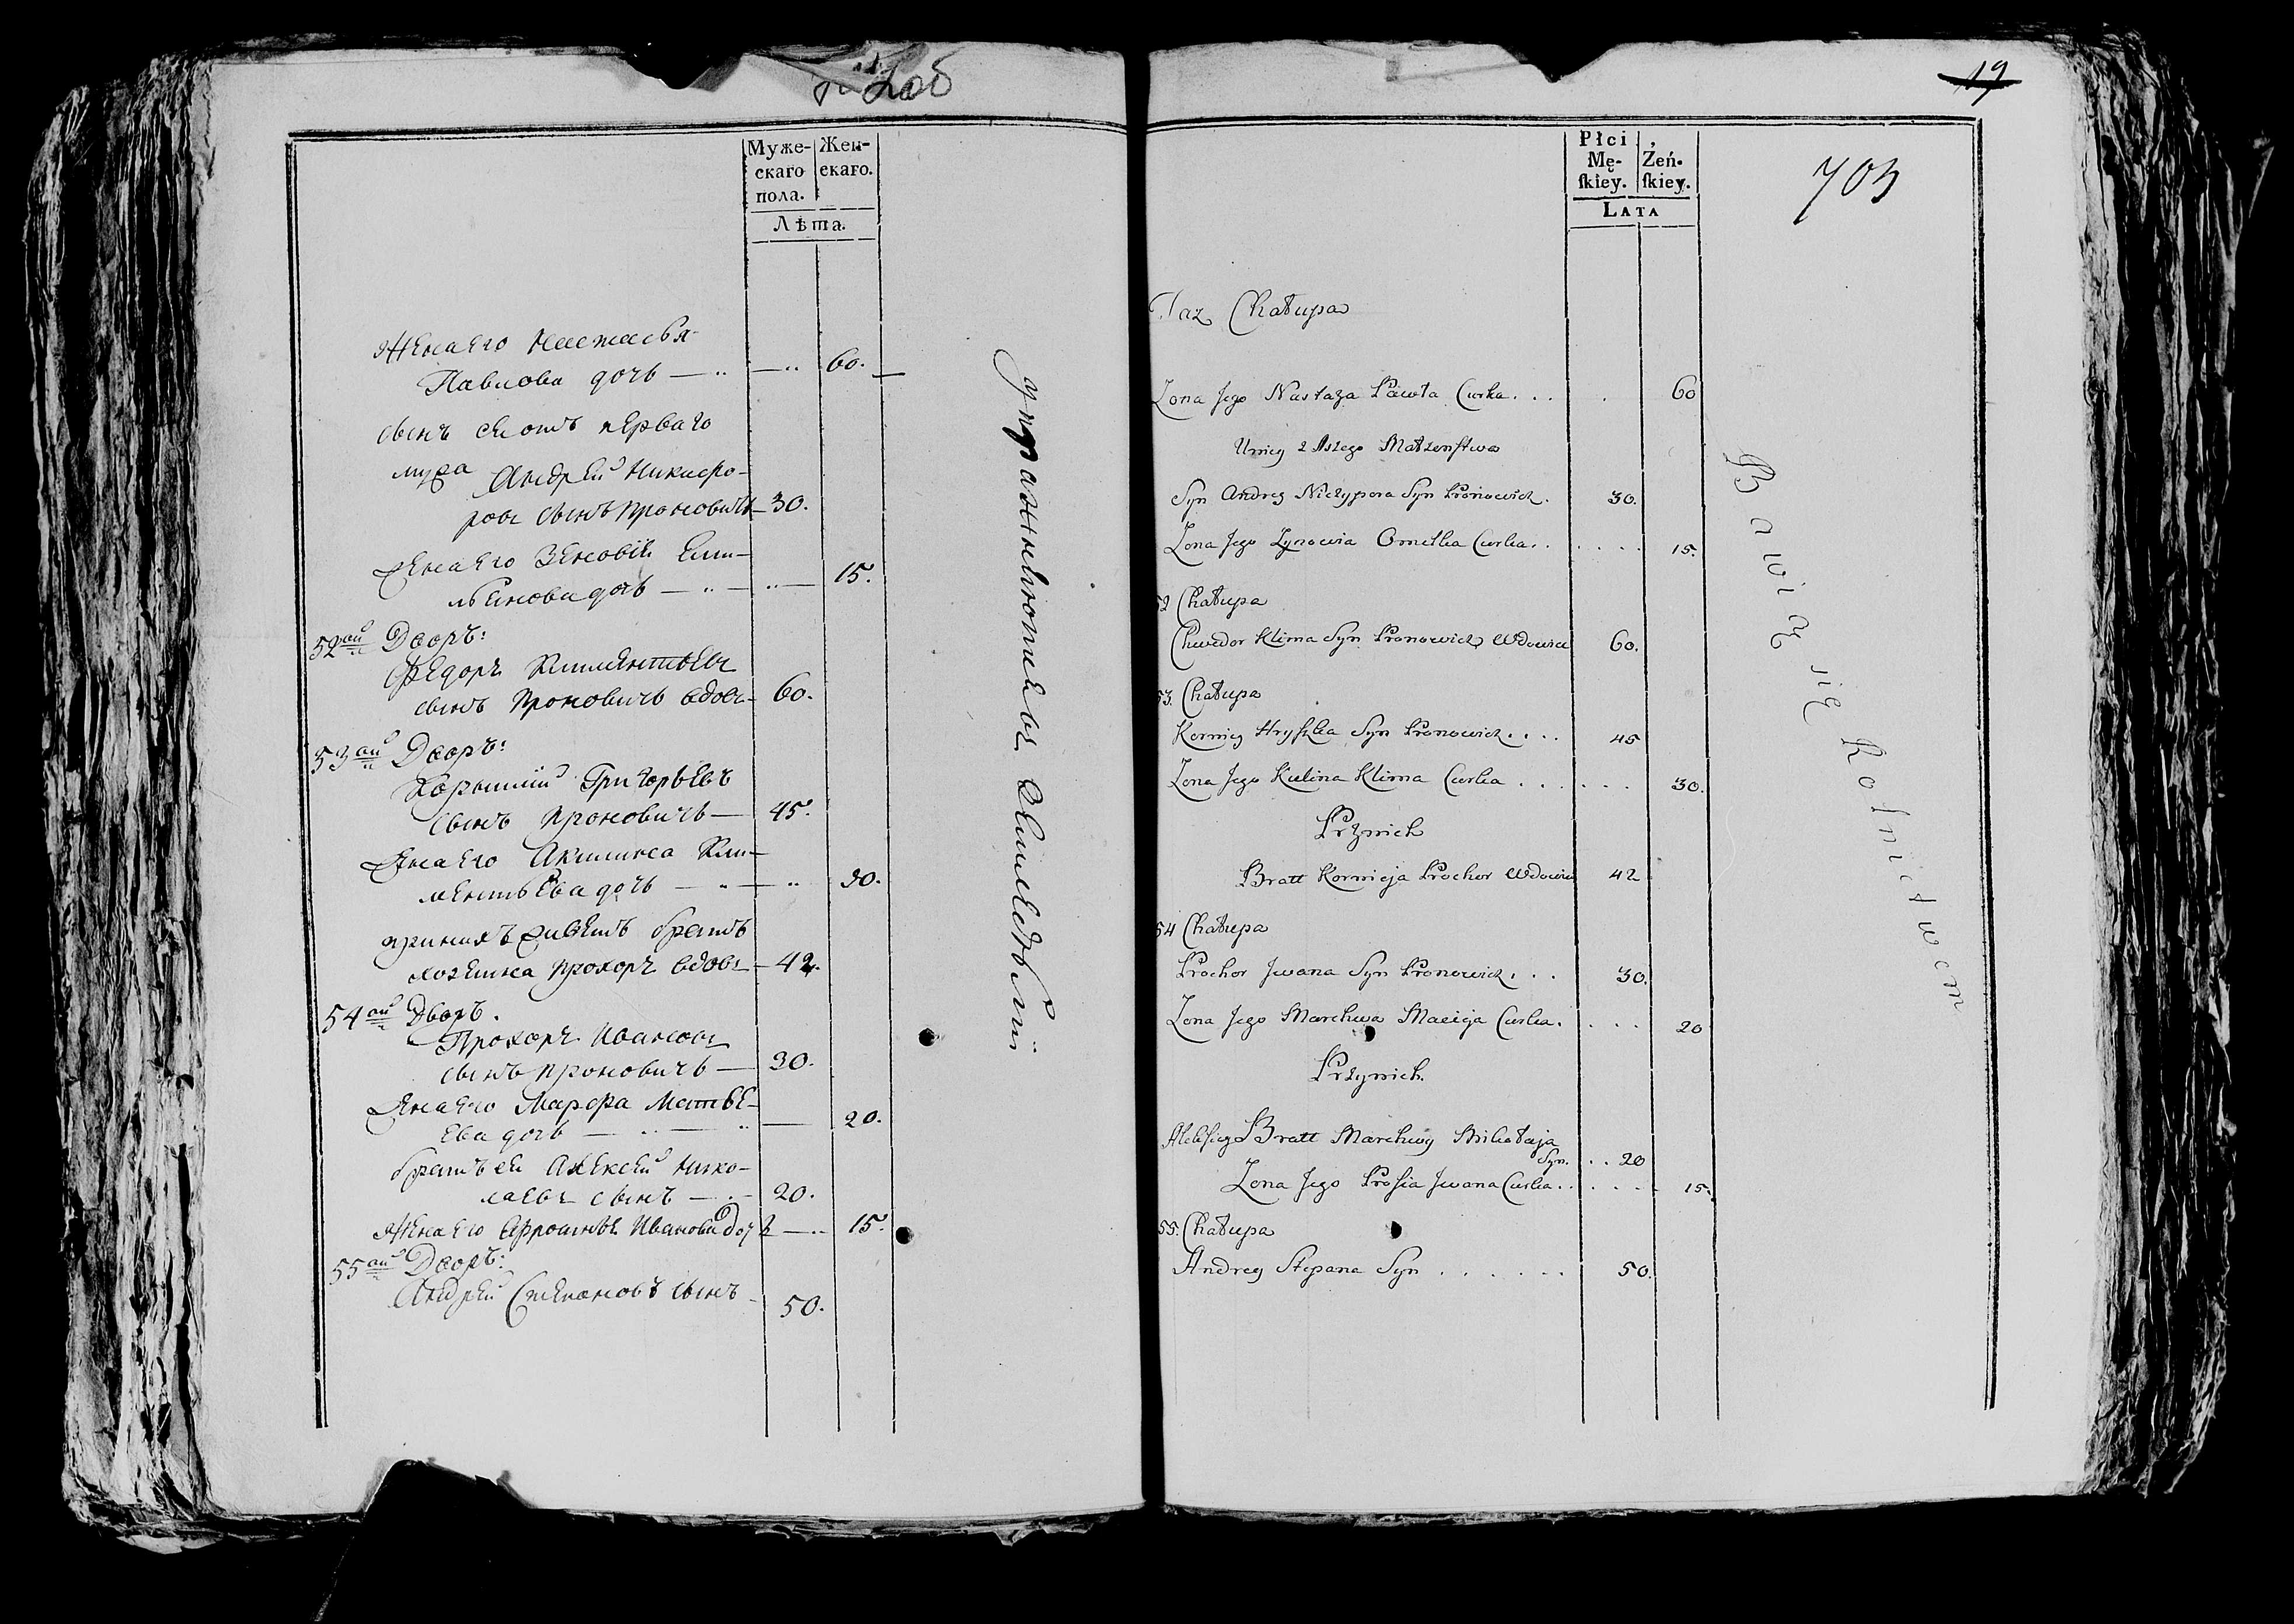 Муже-
скаго
пола.
Жен-
скаго.
Лѣта.
Жена его Настасья
Павлова дочь — 60.
сынъ ея отъ перваго
мужа Андрей Никифо-
ровъ сынъ Проновичъ — 30.
Жена его Зеновія Еми-
льянова дочь — 15.
52ой Дворъ:
Федоръ Климентьевъ
сынъ Проновичъ вдовъ — 60.
53ой Дворъ:
Корнилій Григорьевъ
сынъ Проновичъ — 45.
Жена его Акилина Кли-
ментьева дочь — 30.
при нихъ живетъ братъ
хозяина Прохоръ вдовъ — 42.
54ой Дворъ.
Прохоръ Ивановъ
сынъ Проновичъ — 30.
Жена его Марфа Матве-
ева дочь — 20.
братъ ея Алексей Нико-
лаевъ сынъ — 20.
Жена его Афросинья Иванова дочь — 15.
55ой Дворъ:
Андрей Степановъ сынъ — 50.
упражняются въ земледѣлiи
19
703
Płci
Mę-
ſkiey.
Żeń-
ſkiey.
LATA
Taz Chałupa
Zona Jego Nastaza Pawła Curka . . . 60
U niey z 1szego Małzenstwa
Syn Andrey Niczypora Syn Pronowicz. 30.
Zona Jego Zynowia Omelka Curka . . 15.
52 Chałupa
Chwedor Klima Syn Pronowicz Wdowiec 60.
53. Chałupa
Korniey Hryszka Syn Pronowicz . . . . 45
Zona Jego Kulina Klima Curka . . . . . . 30.
Przy nich
Bratt Kornieja Prochor Wdowiec 42
54 Chałupa
Prochor Jwana Syn Pronowicz . . . 30.
Zona Jego Marchwa Macieja Curka . . . . 20
Przy nich.
Aleksiey Bratt Marchwy Mikołaja
Syn. . . 20
Zona Jego Prosia Jwana Curka . . . . . . 15.
55. Chałupa
Andrey Stepana Syn . . . . . . 50.
Bawią się Rolnictwem